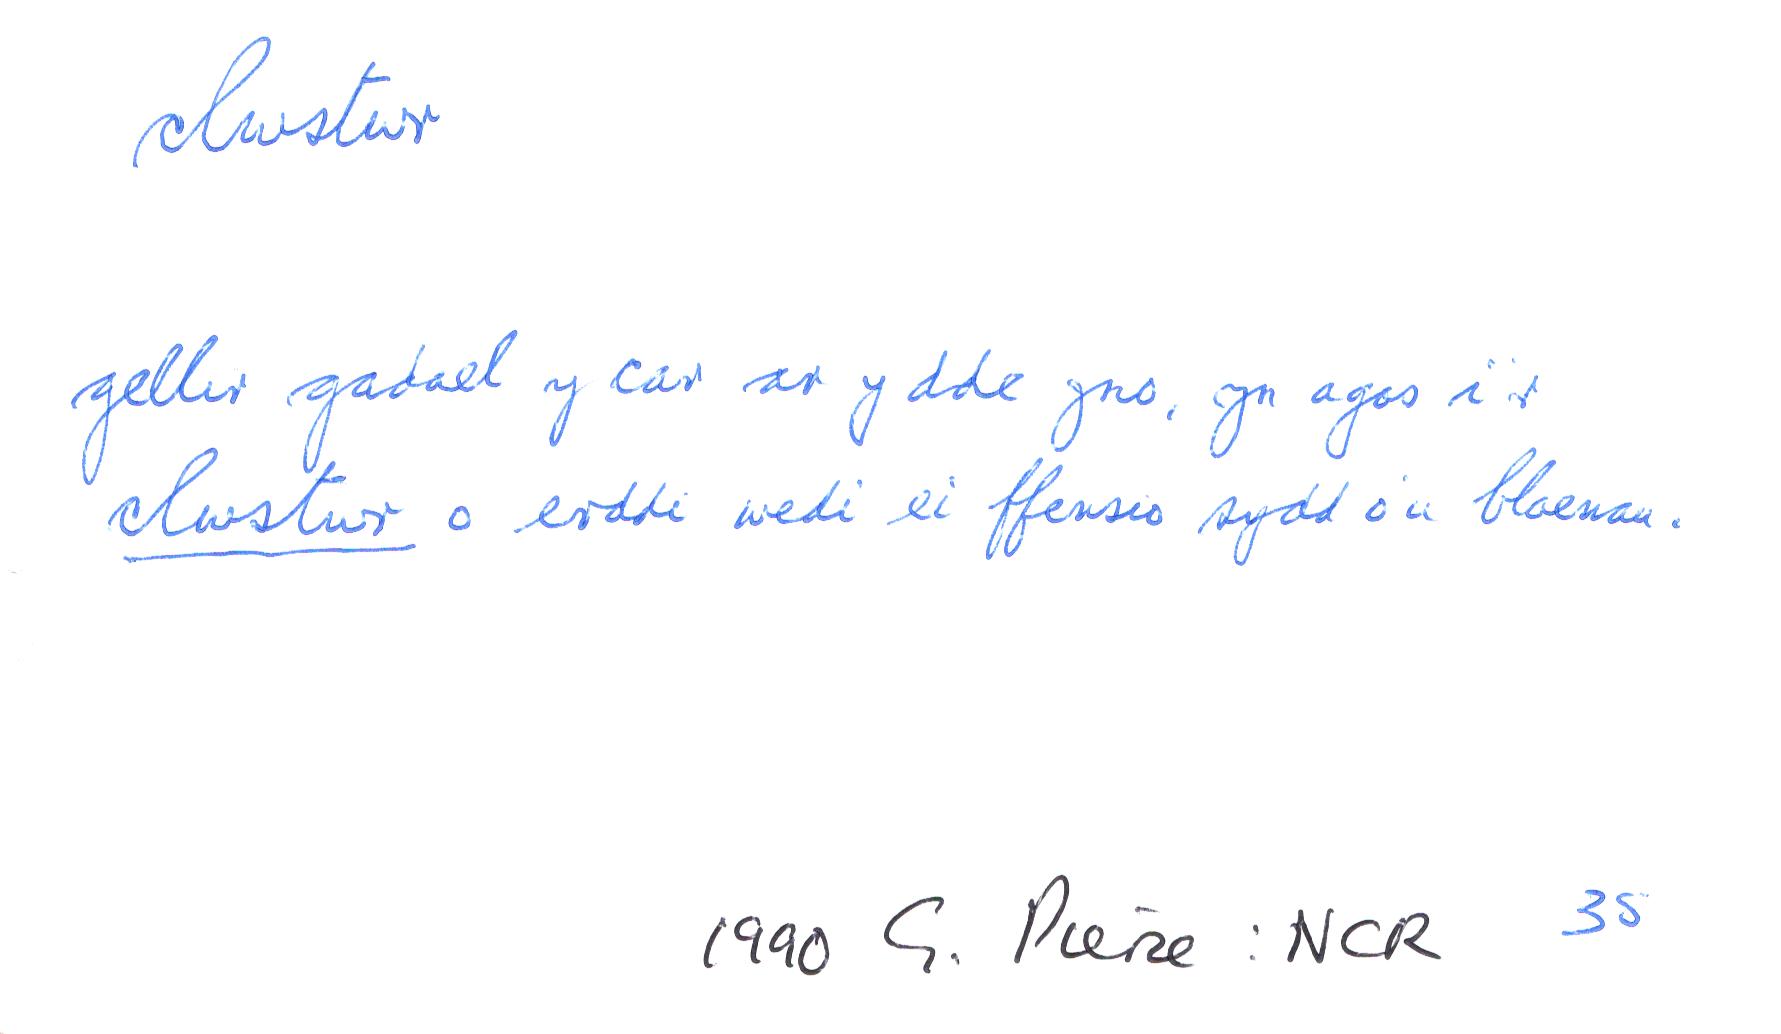 clwstwr
gellir gadael y car ar y dde yno, yn agos i'r
clwstwr o erddi wedi ei ffensio sydd o'u blaenau.
1990 G. Pierce : NCR 35